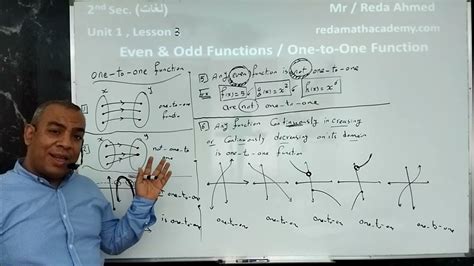 2nd Sec. (لغات)
Mr / Reda Ahmed
Unit 1 , Lesson 3
redamathacademy.com
Even & Odd Functions / One-to-One Function
one-to-one function
x
y
one-to-one
function
x
y
not-one-to
one
one-to-one
is one-to-one
5 Any even function is not one-to-one
Ex f(x)=5 , f(x)=x² , f(x)=x⁴
are not one-to-one
6 Any function Continuously increasing
or Continuously decreasing on its domain
is one-to-one function
one-to-one
one-to-one
one-to-one
one-to-one
one-to-one